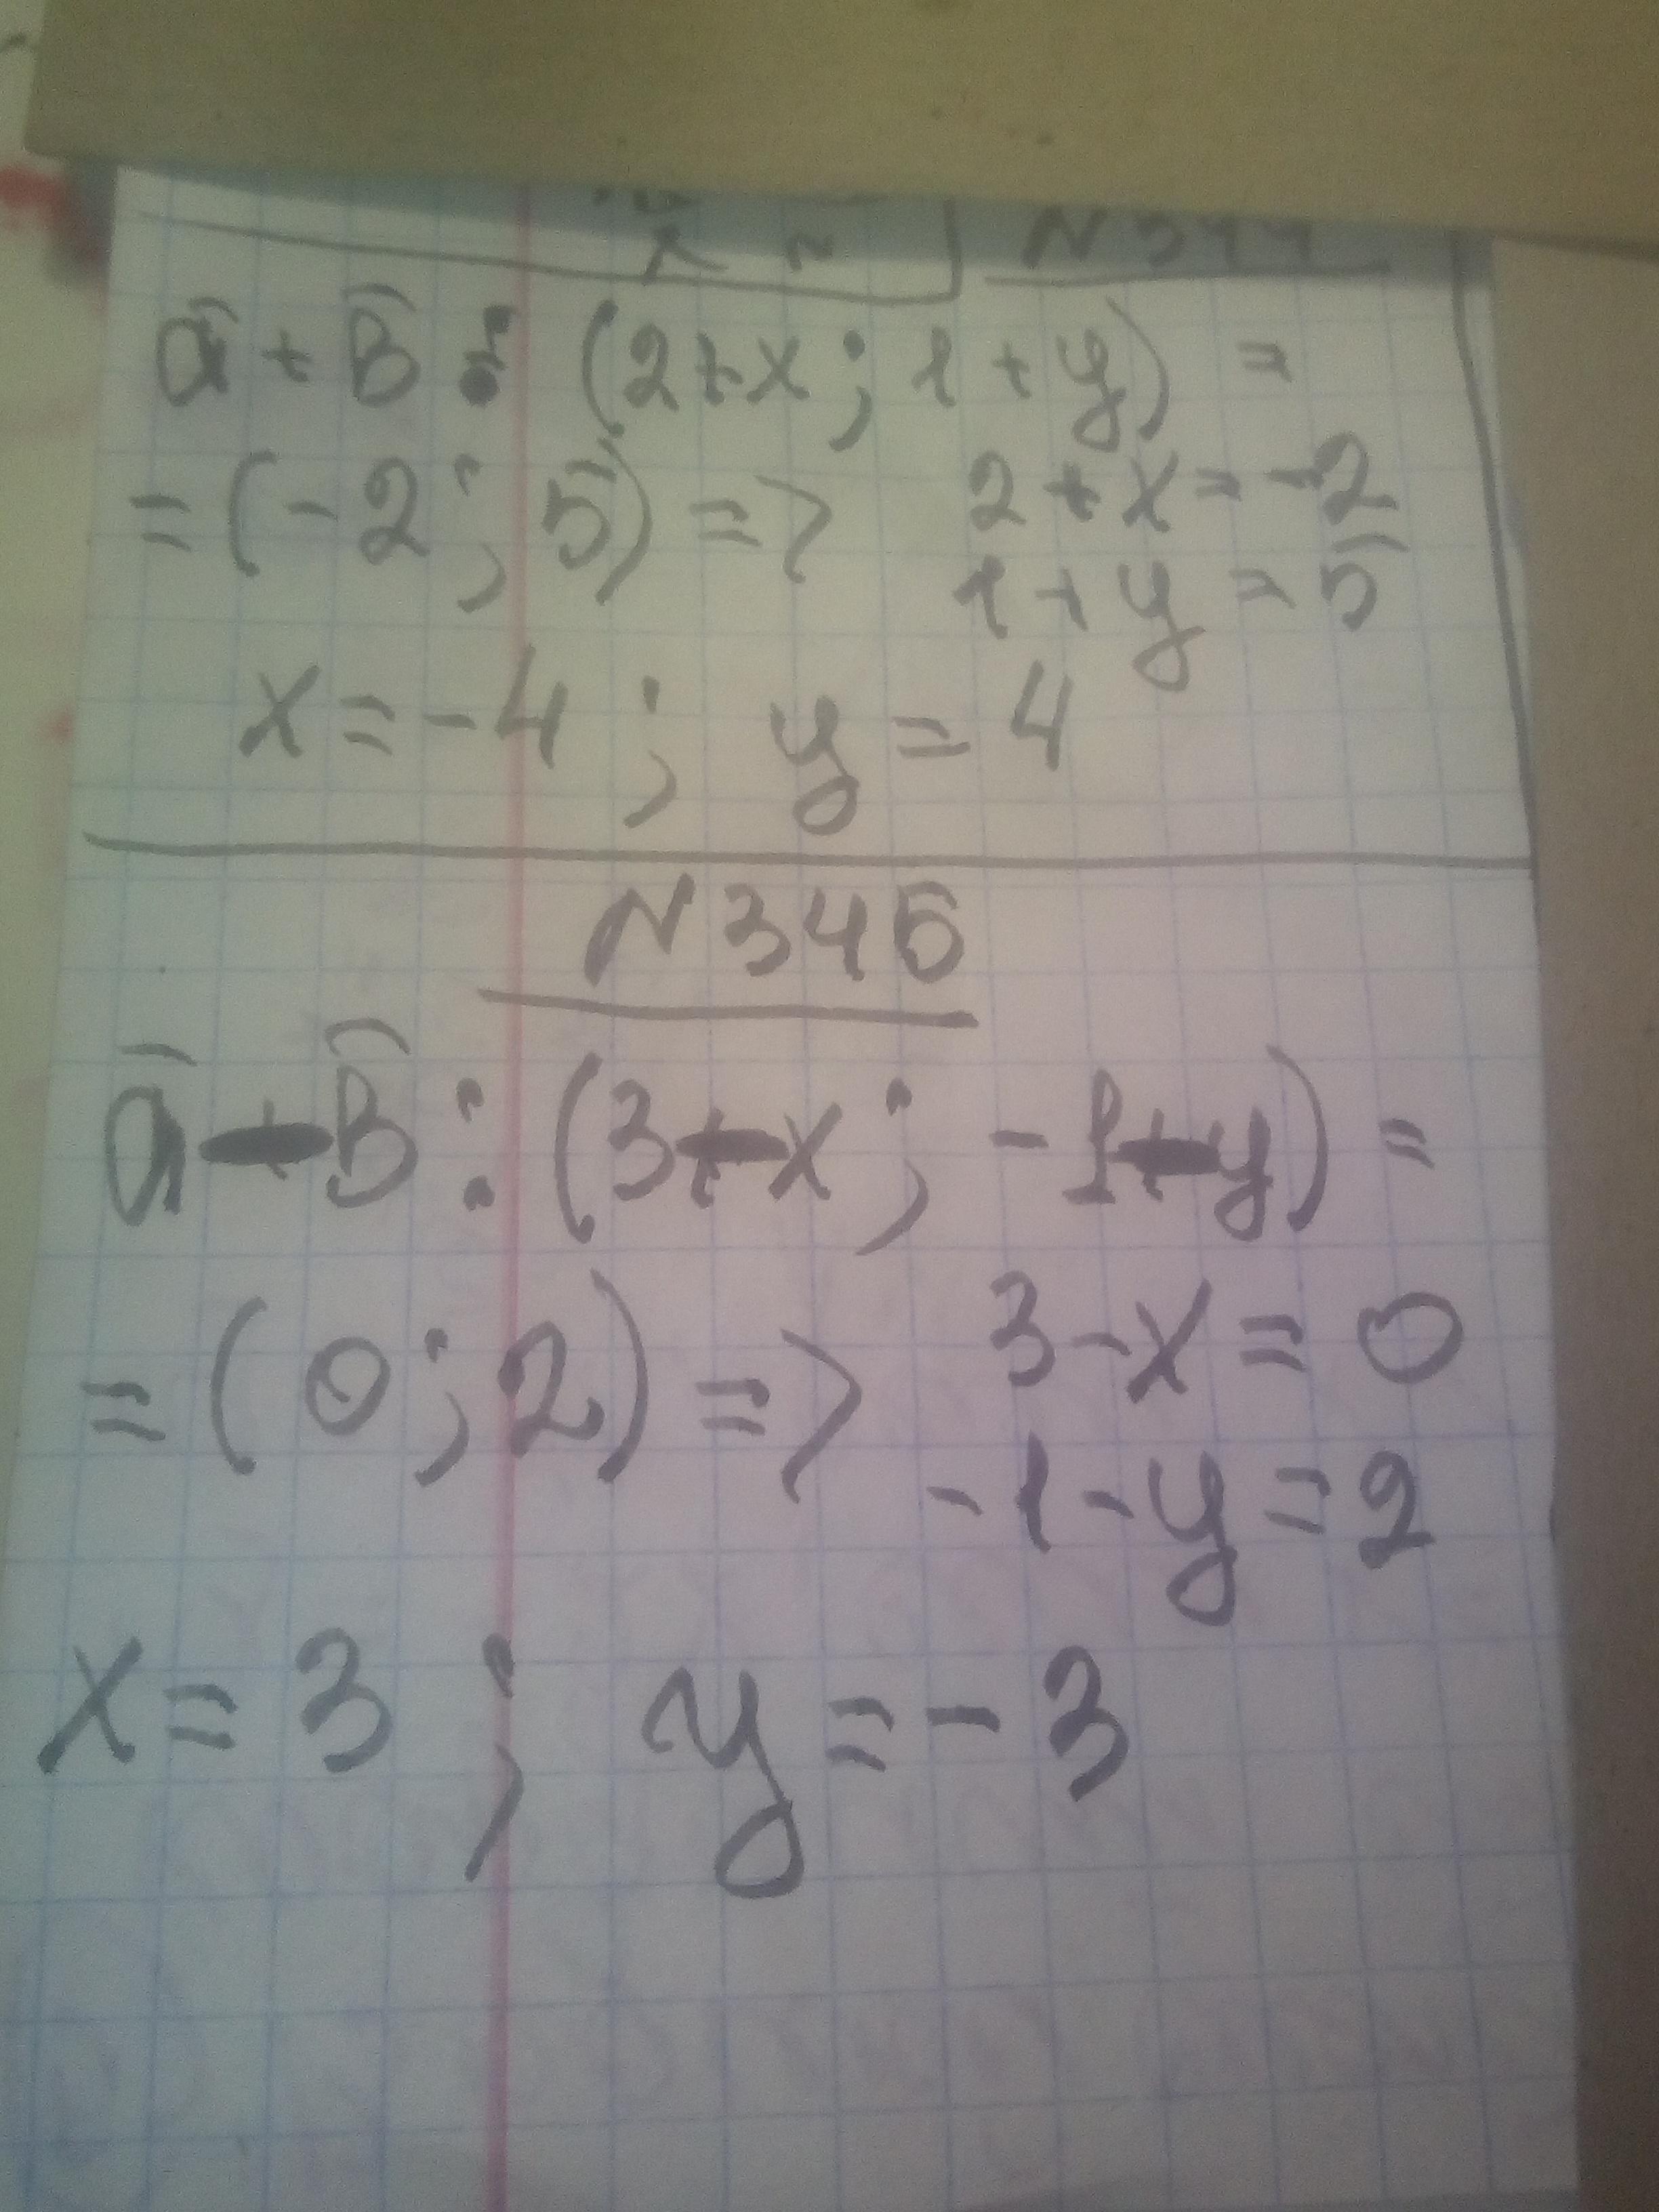 N 344
a̅ + B̅ : (2+x; 1+y) =
= (-2; 5) => 2+x=-2
1+y=5
x=-4; y=4
N345
a̅ - B̅ : (3-x; -1-y) =
= (0; 2) => 3-x=0
-1-y=2
x=3; y=-3